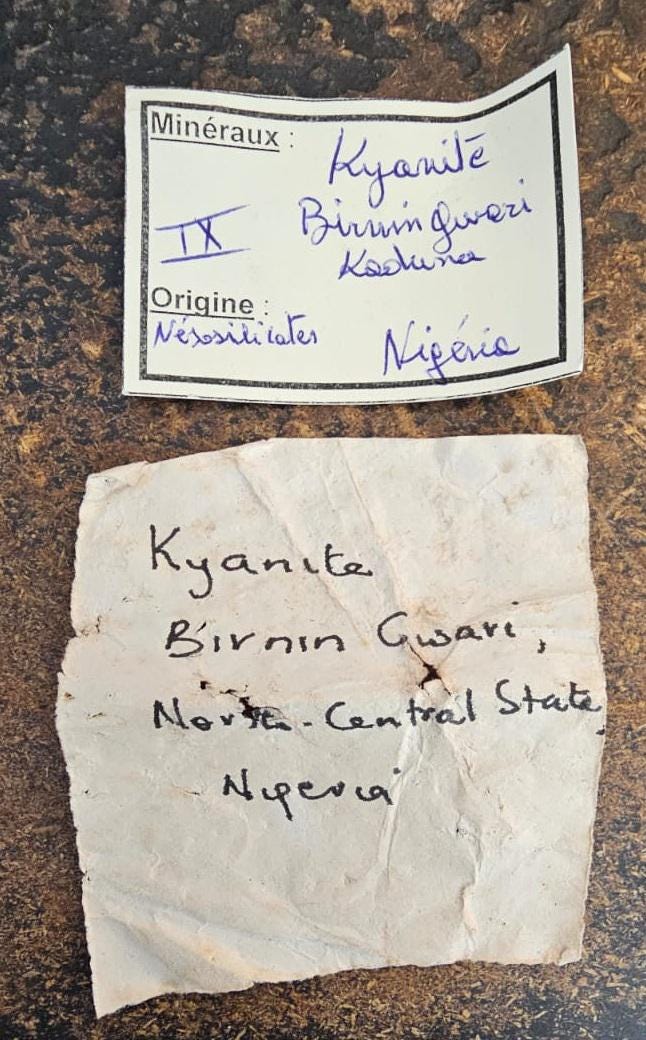 Minéraux :
Kyanite
IX
Birnin Gwari
Kaduna
Origine :
Nésosilicates
Nigéria
Kyanite
Birnin Gwari,
North-Central State,
Nigeria